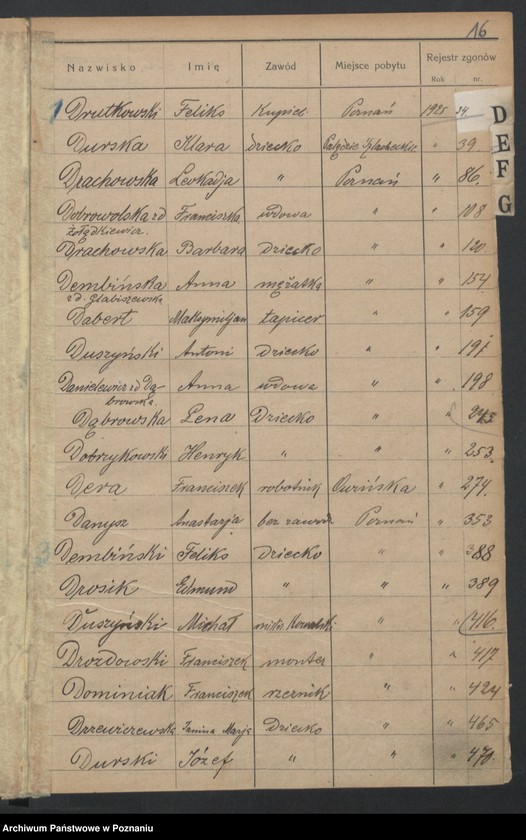 16
Nazwisko Imię Zawód Miejsce pobytu Rejestr zgonów
Rok nr.
Drutkowski Feliks Kupiec Poznań 1925 34
Durska Klara dziecko 〃 39.
Drachowska Leokadja 〃 Poznań 〃 86.
Dobrowolska zd Franciszka wdowa 〃 〃 108
Żołądkiewicz.
Drachowska Barbara dziecko 〃 〃 120.
Dembińska Anna mężatka 〃 〃 154
zd. Głabiszewska
Dabert Maksymiljan tapicer 〃 〃 159
Duszyński Antoni dziecko 〃 〃 191
Danielewicz zd Dą- Anna wdowa 〃 〃 198
browska.
Dąbrowska Lena Dziecko 〃 〃
Dobrzykowski Henryk 〃 〃 〃 253.
Dera Franciszek robotnik Owińska 〃 274.
Danysz Anastazja bez zawodu Poznań 〃 353
Dembiński Feliks Dziecko 〃 〃 388
Drosik Edmund 〃 〃 〃 389
Duszyński Michał mistrz Kowalski 〃 〃 416.
Drozdowski Franciszek monter 〃 〃 417
Dominiak Franciszek rzeźnik 〃 〃 424
Drzewiczewska Janina Marja Dziecko 〃 〃 465
Durski Józef 〃 〃 〃 470.
D
E
F
G
Archiwum Państwowe w Poznaniu